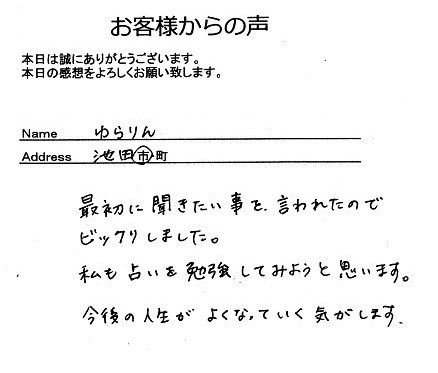 お客様からの声
本日は誠にありがとうございます。
本日の感想をよろしくお願い致します。
Name ゆらりん
Address 池田市町
最初に聞きたい事を、言われたので
ビックリしました。
私も占いを勉強してみようと思います。
今後の人生がよくなっていく気がします.